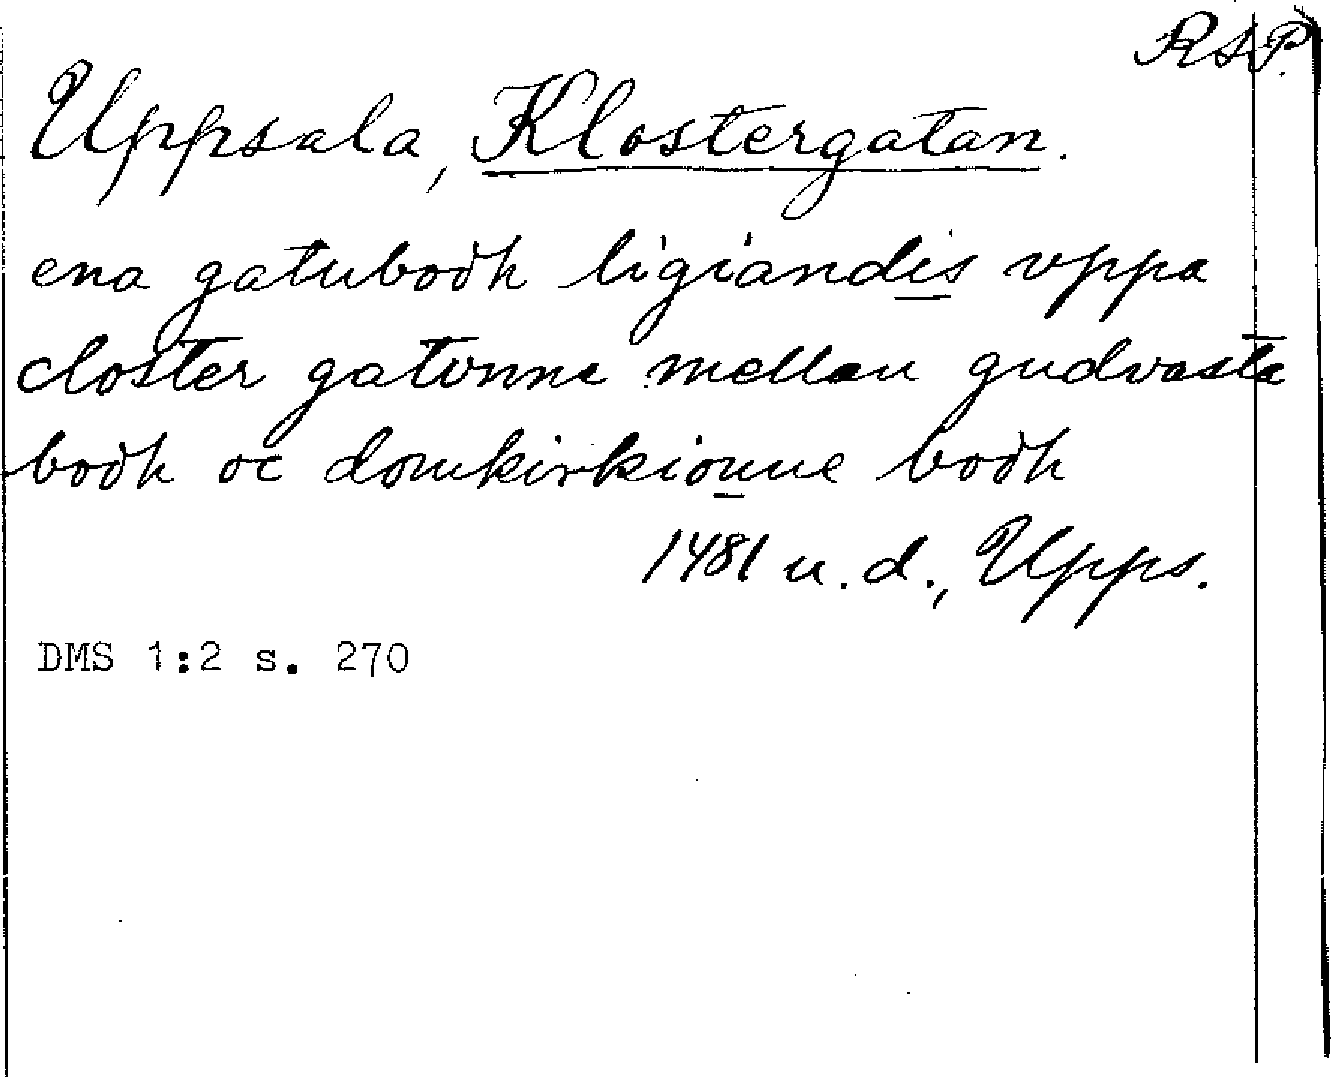 RAP.
Uppsala, Klostergatan.
ena gatubodh ligiandis vppa
closter gatvnne mellan gudvasta
bodh oc domkirkionne bodh
1481 u.d., Upps.
DMS 1:2 s. 270